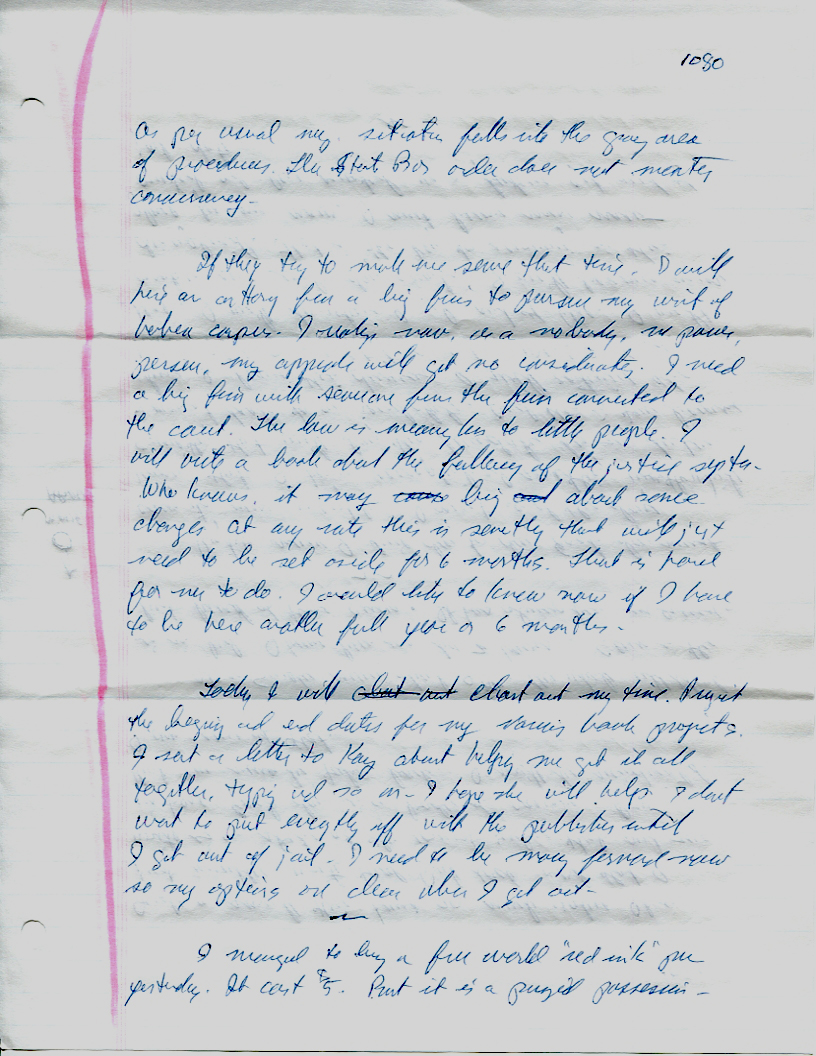 1080
As per usual my situation falls into the gray area
of procedures. The State Bar order does not mention
concurrency.
If they try to make me serve that time, I will
hire an attorney from a big firm to pursue my writ of
habea corpus. I realize now, as a nobody, no power,
person, my appeals will get no consideration. I need
a big firm with someone from the firm connected to
the court. The law is meaningless to little people. I
will write a book about the fallacy of the justice system.
Who knows, it may bring about some
changes at any rate this is something that will just
need to be set aside for 6 months. That is hard
for me to do. I would like to know now if I have
to be here another full year or 6 months.
Today I will chart out my time. Project
the begining and end dates for my various book projects.
I sent a letter to Kay about helping me get it all
together, typing and so on. I hope she will help. I don't
want to put everything off with the publisher until
I get out of jail. I need to be moving forward now
so my options are clear when I get out.
I managed to buy a free world "red ink" pen
yesterday. It cost $5. But it is a prized possession.